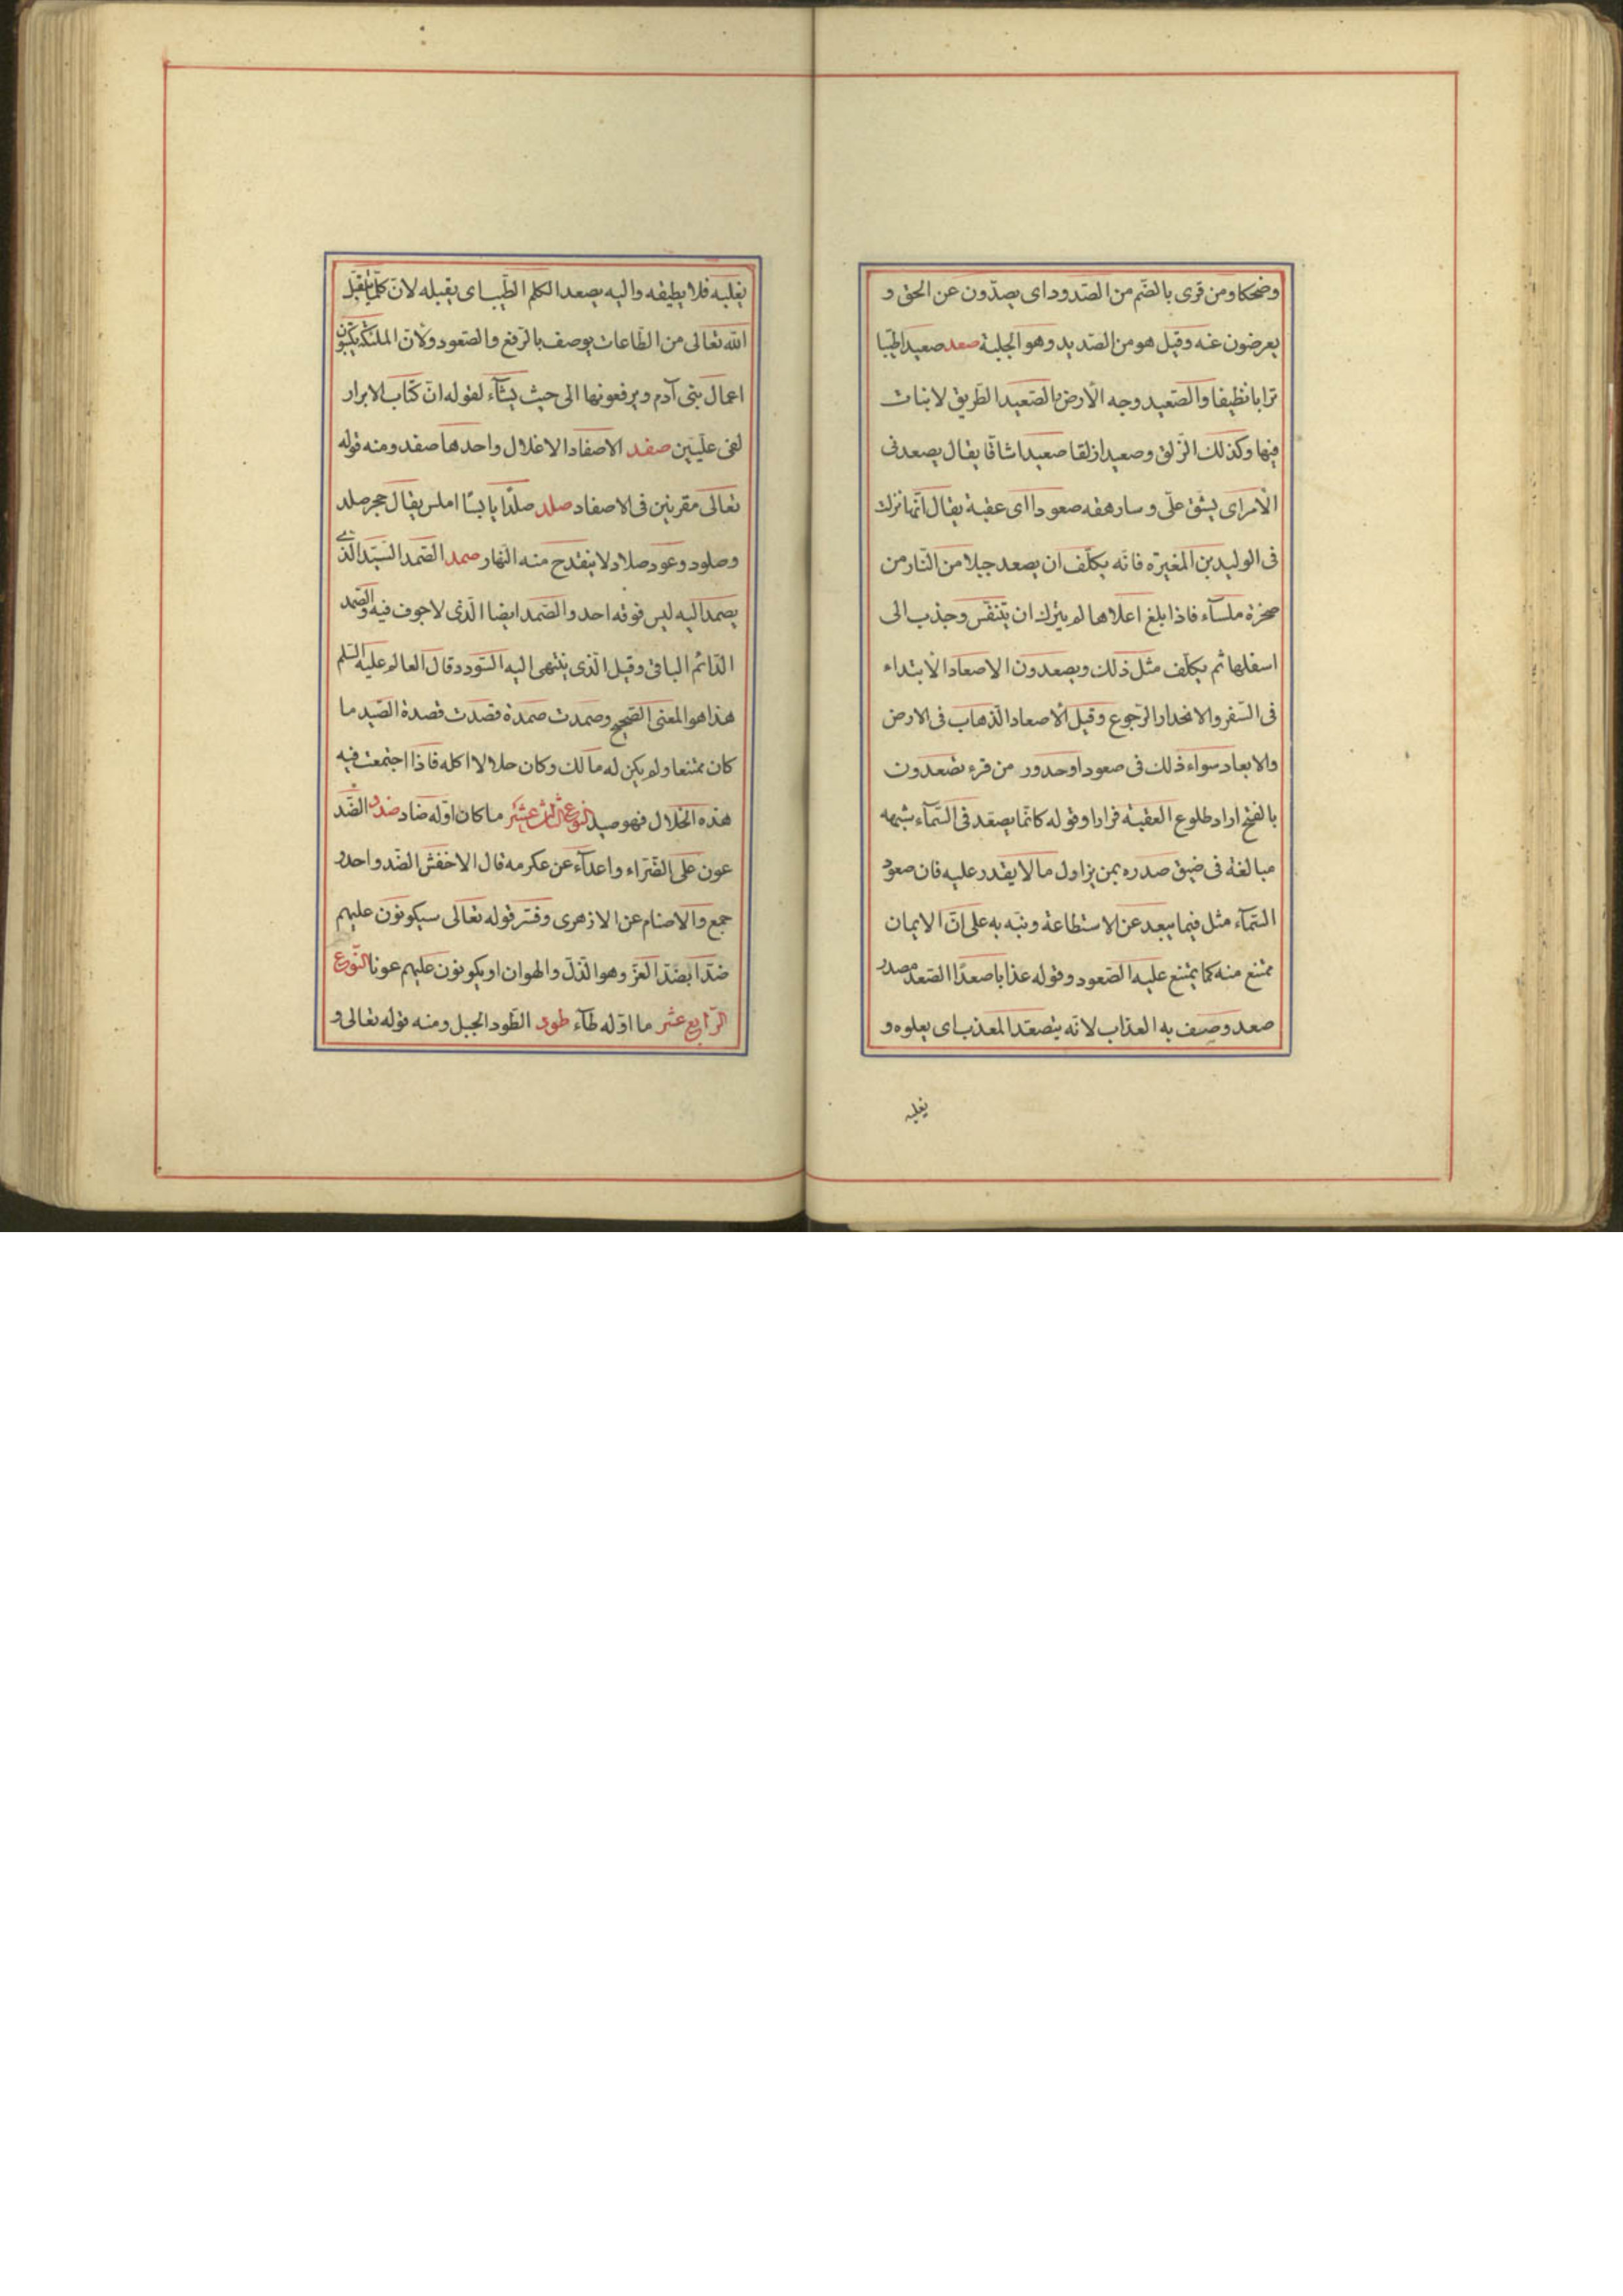 وضحكا ومن قرى بالضّم من الصّدود اى يصدّون عن الحق و
يعرضون عنه وقيل هو من الصّديد وهو الجلبة صعد صعيدا طيّبا
ترابا نظيفا والصّعيد وجه الارض والصّعيد الطّريق لا نبات
فيها وكذلك الزّلق وصعيدا زلقا صعيدا شاقا يقال يصعد فى
الامر اى يشق علّى وسارهقه صعودا اى عقبة يقال انّها نزلت
فى الوليد بن المغيرة فانّه يكلّف ان يصعد جبلا من النّار من
صخرة ملسآء فاذا بلغ اعلاها لم يترك ان يتنفّس وجذب الى
اسفلها ثم يكلّف مثل ذلك ويصعدون الاصعاد الابتداء
فى السّفر والانحدار الرّجوع وقيل الاصعاد الذّهاب فى الارض
والابعاد سواء ذلك فى صعود او حدور من قرء تصعدون
بالفتح اراد طلوع العقبة فرارا وقوله كانّما يصعّد فى السّمآء شبهه
مبالغة فى ضيق صدره بمن يزاول ما لا يقدر عليه فان صعود
السّمآء مثل فيما يبعد عن الاستطاعة ونبّه به على انّ الايمان
ممتنع منه كما يمتنع عليه الصّعود وقوله عذابا صعدًا الصّعد مصدر
صعد وصف به العذاب لانّه يتصعّد المعذب اى يعلوه و
يغلبه
يغلبه فلا يطيقه واليه يصعد الكلم الطّيب اى يقبله لانّ كلّما يتقبّل
اللّه تعالى من الطّاعات يوصف بالرّفع والصّعود ولانّ الملئكة يكتبون
اعمال بنى آدم ويرفعونها الى حيث يشآء لقوله انّ كتاب الابرار
لفى علّيّين صفد الاصفاد الاغلال واحدها صفد ومنه قوله
تعالى مقرنين فى الاصفاد صلد صلدًا يابسًا املس يقال حجر صلد
وصلود وعود صلاد لا ينقدح منه النّهار صمد الصّمد السّيّد الّذى
يصمد اليه ليس فوقه احد والصّمد ايضا الّذى لا جوف فيه والصّمد
الدّائم الباقى وقيل الّذى ينتهى اليه السّودد وقال العالم عليه السّلم
هذا هو المعنى الصّحيح وصمدت صمدة قصدت قصدة الصّيد ما
كان ممتنعا ولم يكن له مالك وكان حلالا اكله فاذا اجتمعت فيه
هذه الخلال فهو صيد النّوع الثّالث عشر ما كان اوّله ضاد ضدد الضّد
عون على الضّراء واعدآء عن عكرمه قال الاخفش الضّد واحد و
جمع والاصنام عن الازهرى وفسّر قوله تعالى سيكونون عليهم
ضدّا بضدّ العزّ وهو الذّلّ والهوان او يكونون عليهم عونا النّوع
الرّابع عشر ما اوّله طآء طود الطّود الجبل ومنه قوله تعالى و